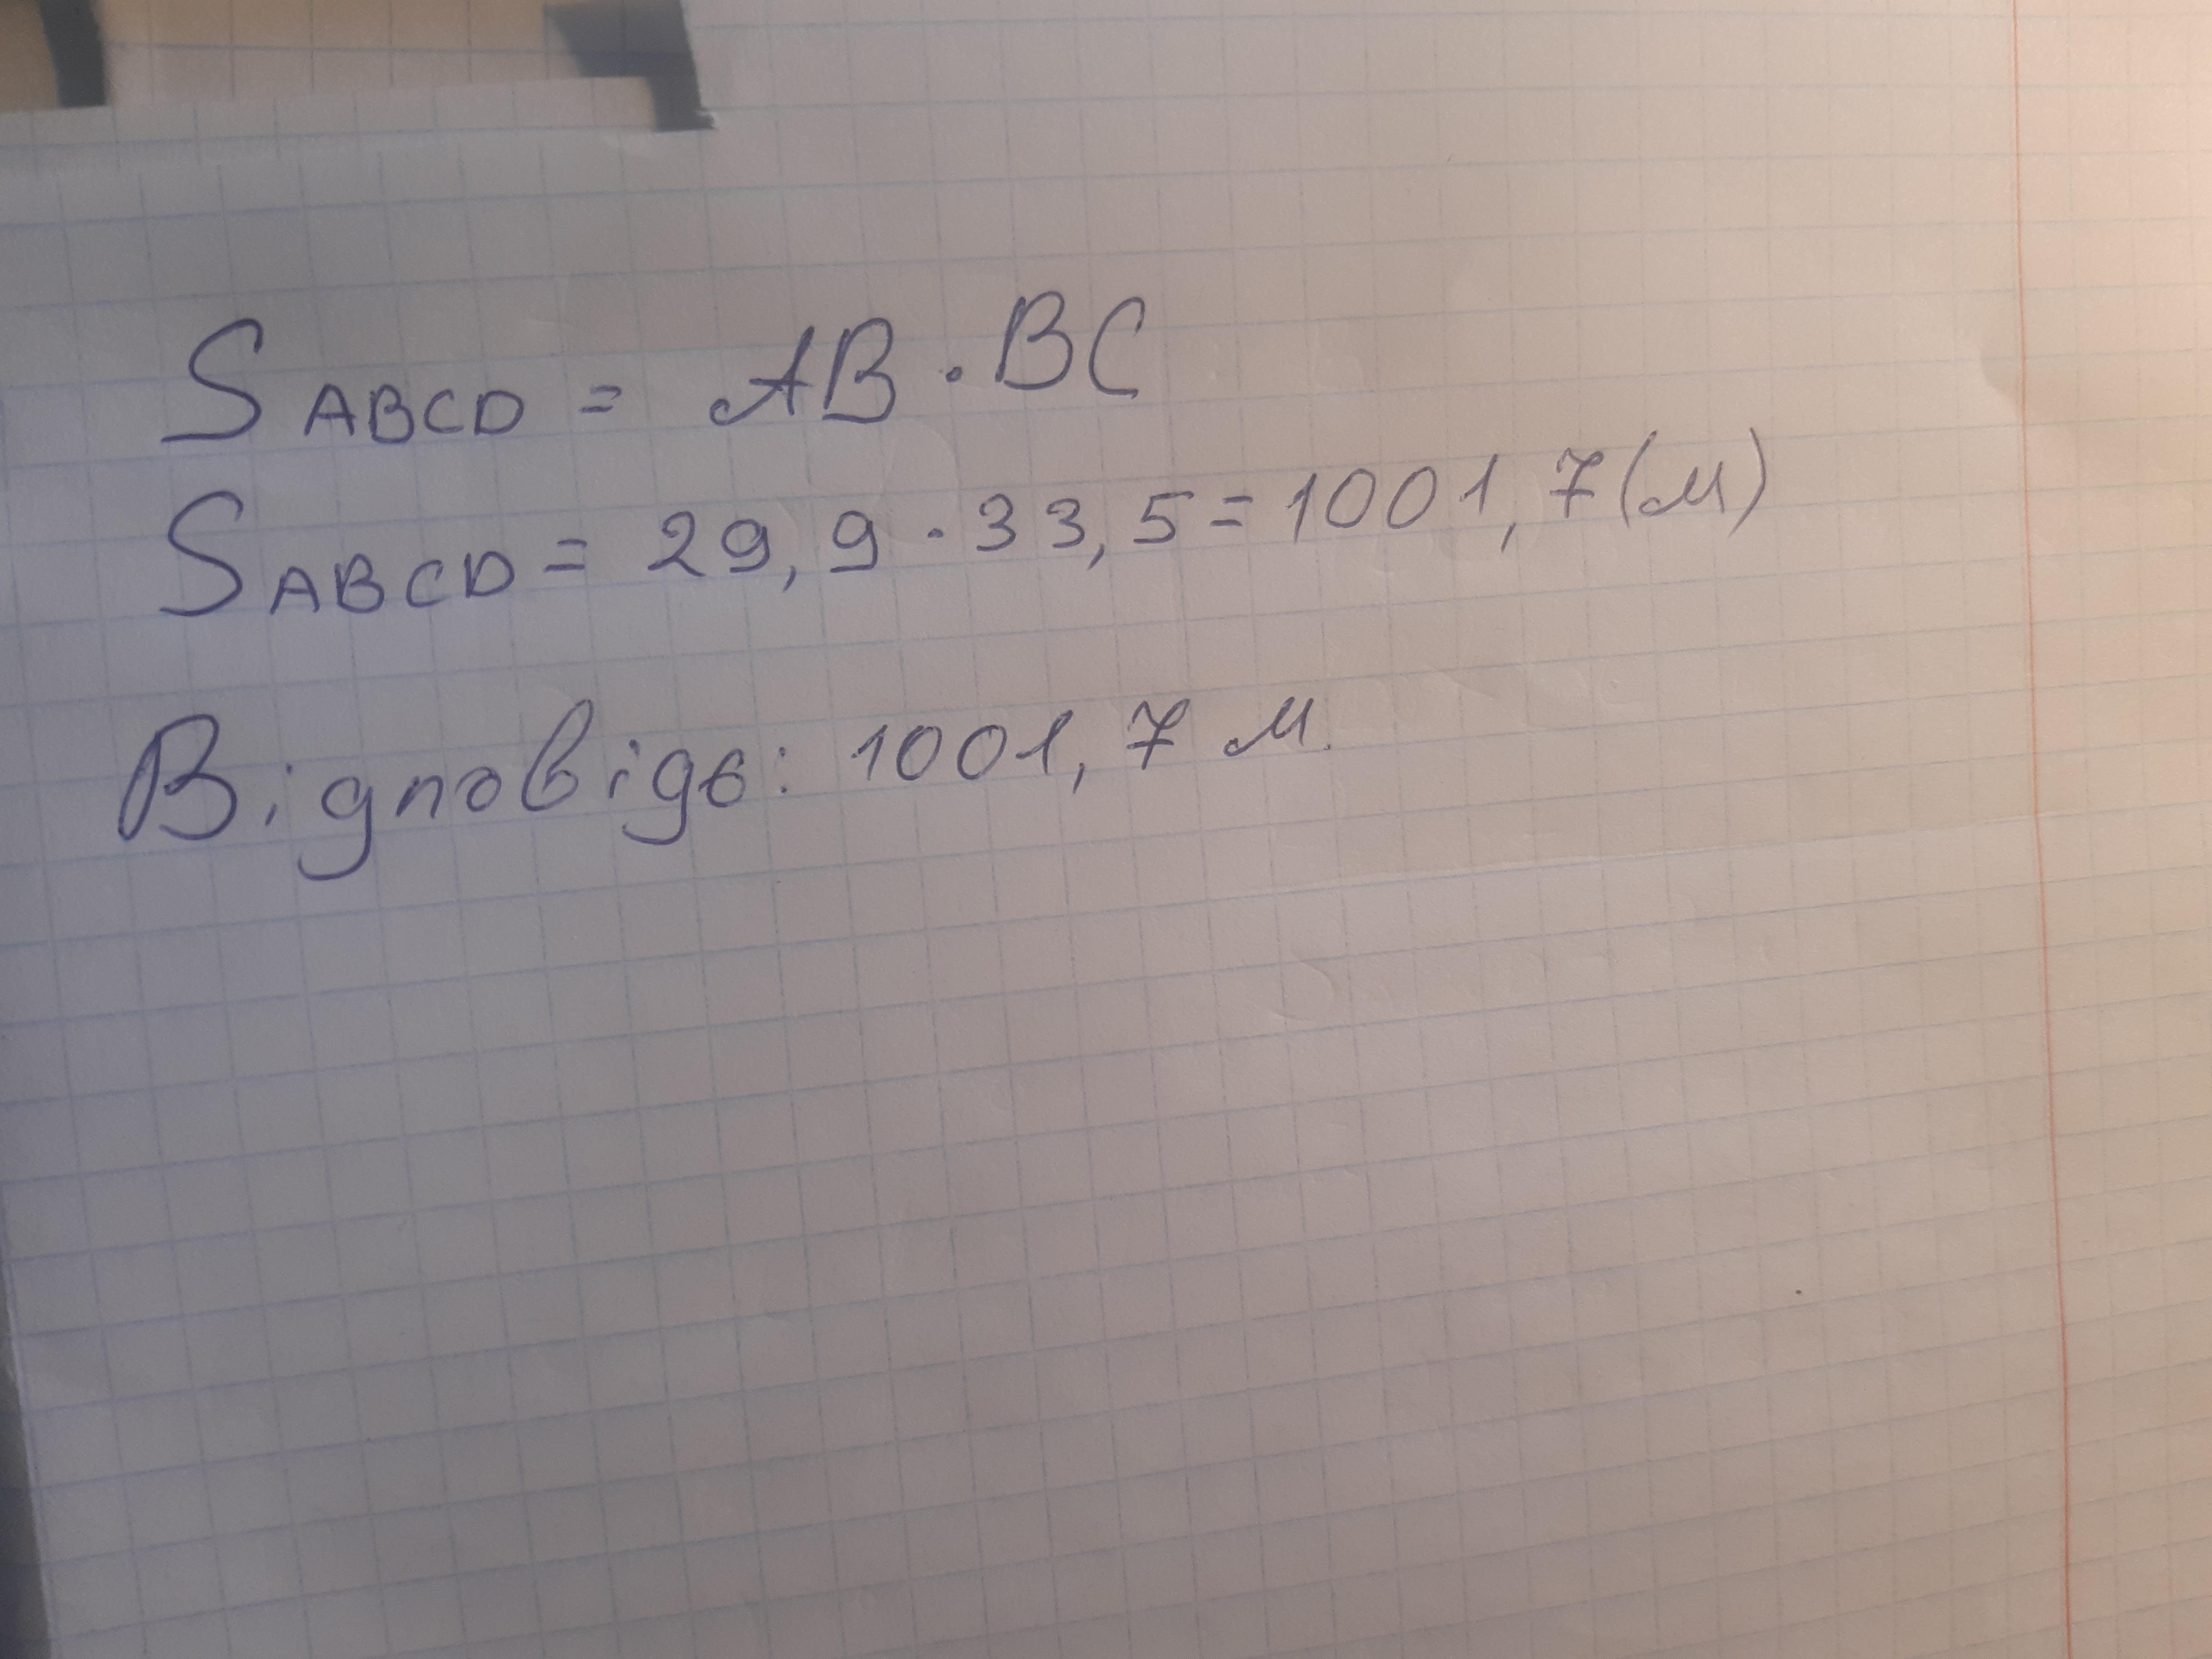 S ABCD = AB · BC
S ABCD = 29,9 · 33,5 = 1001,7 (м)
Відповідь: 1001,7 м.